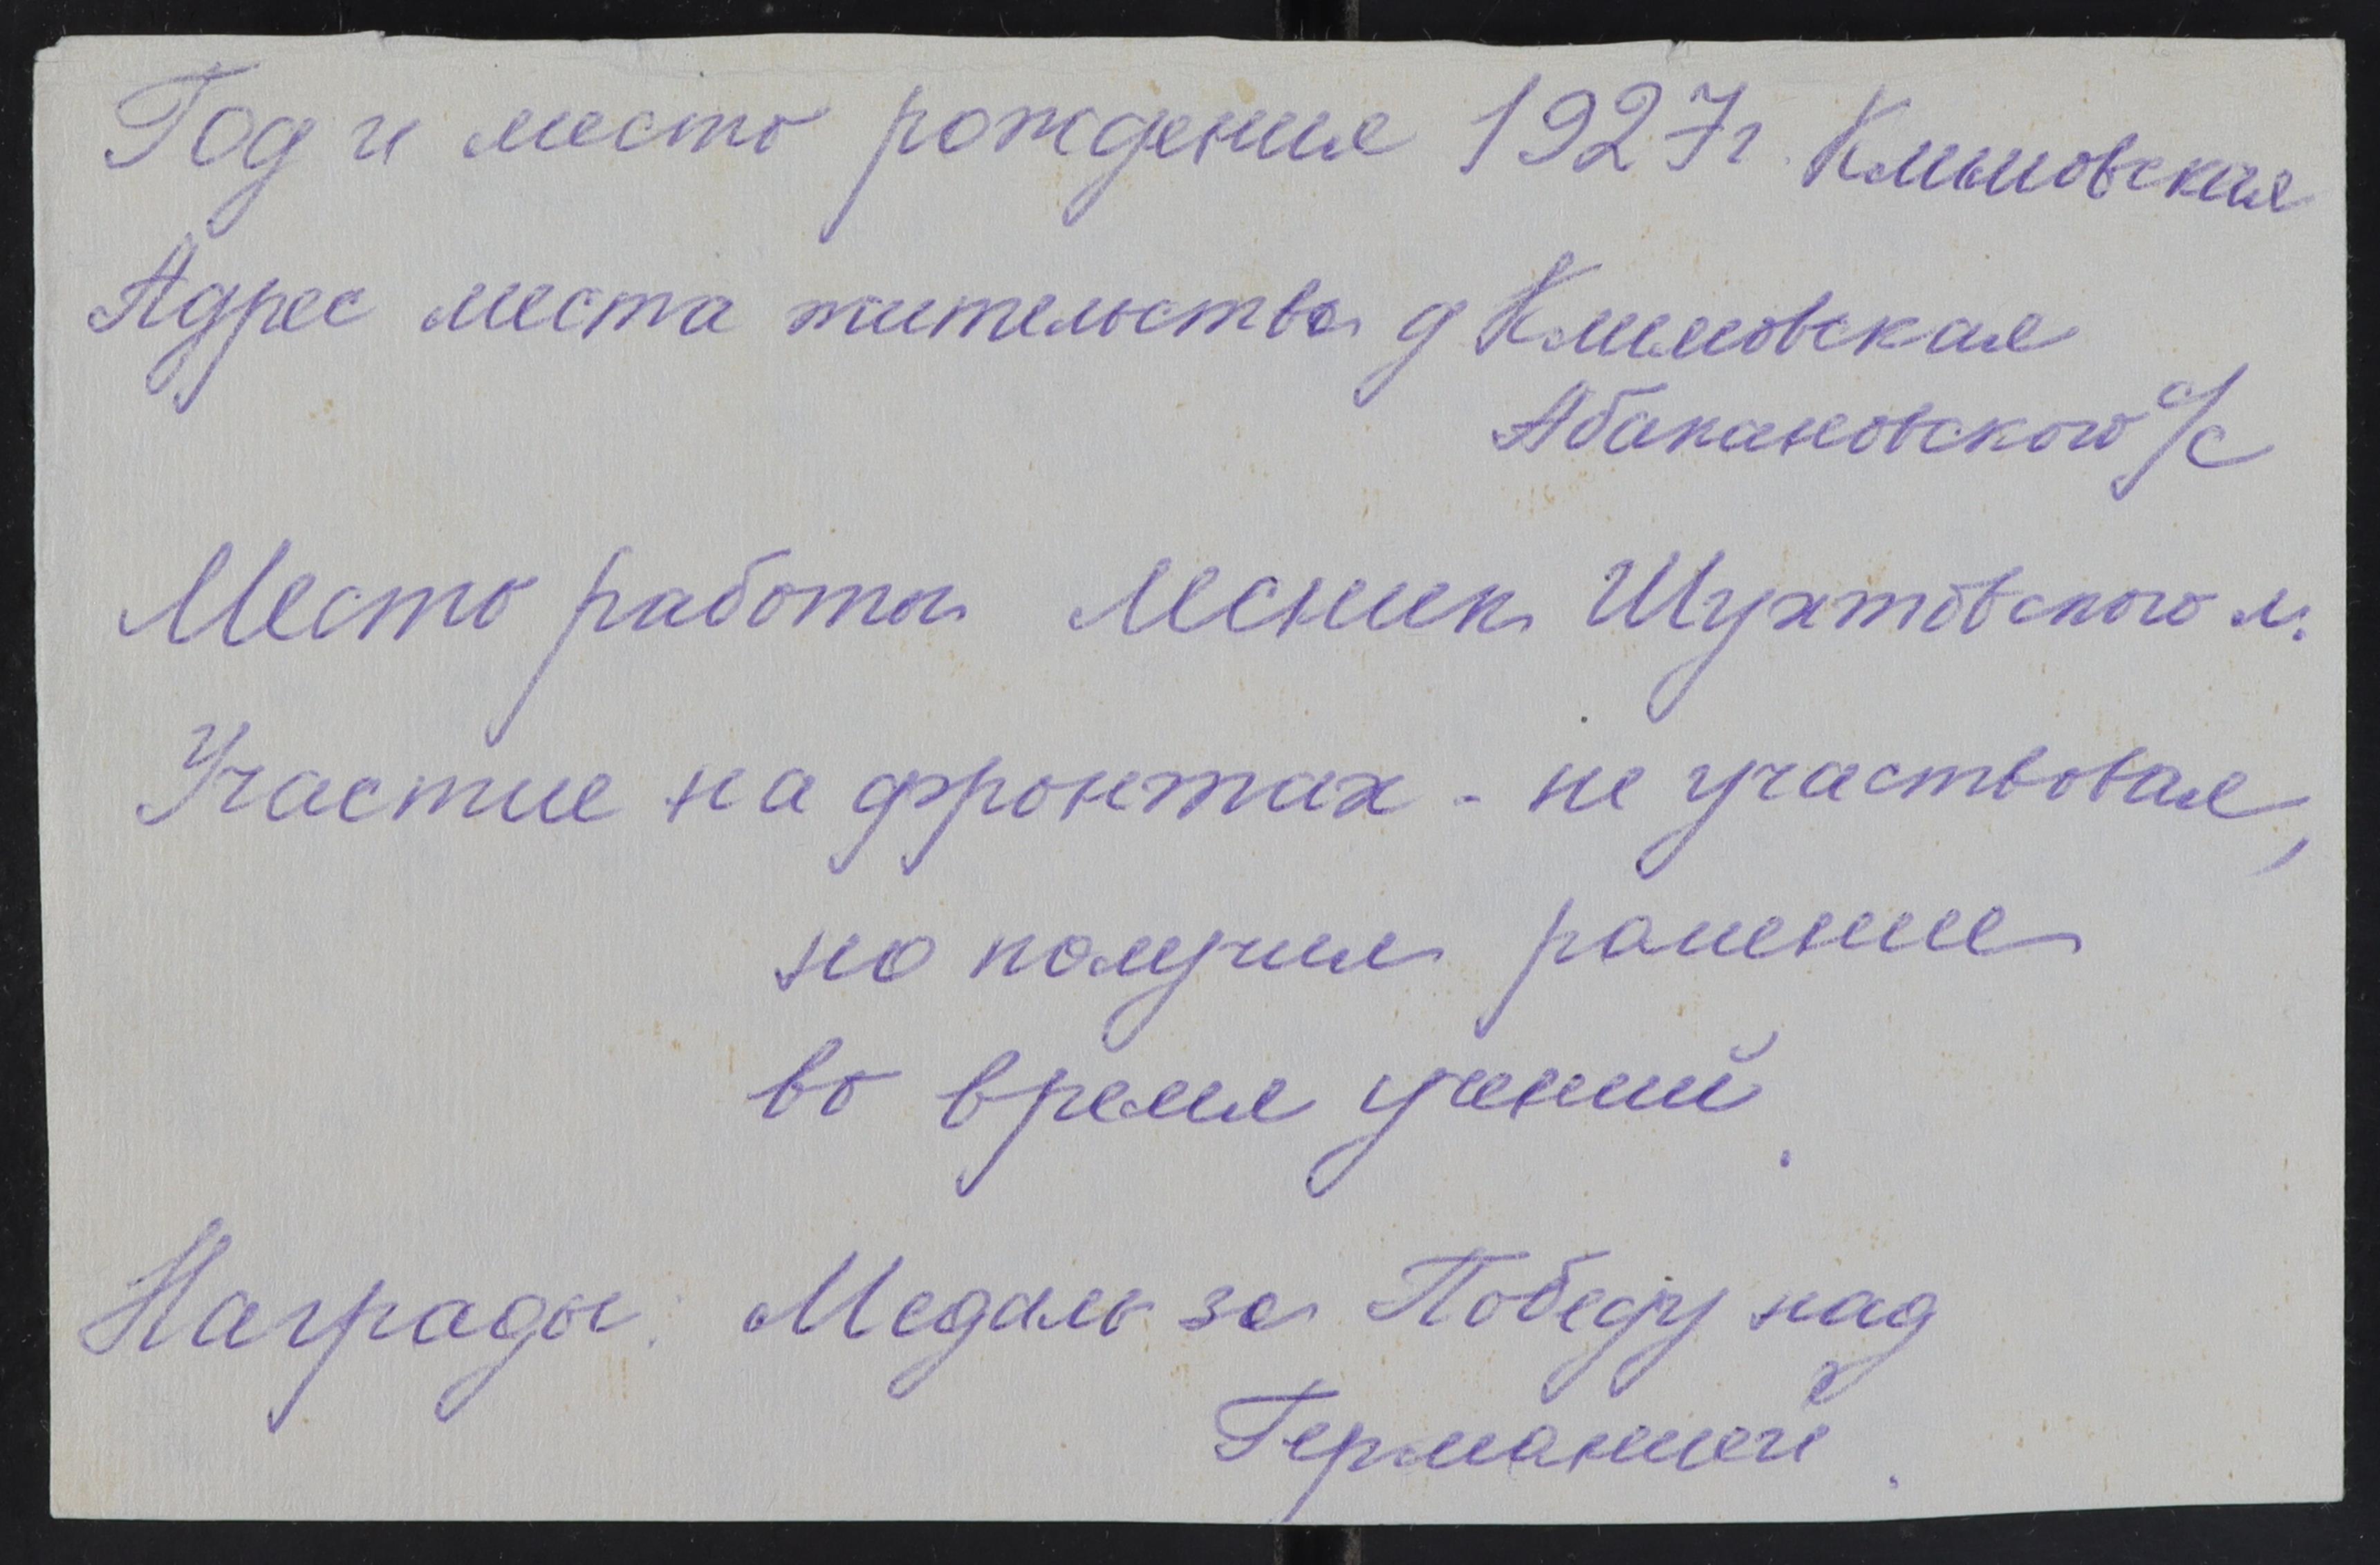 Год и место рождения 1927г. Климовская
Адрес места жительства д Климовская
Абакановского с/с
Место работы лесник Шухтовского л.
Участие на фронтах - не участвовал,
но получил ранение
во время учений.
Награды: Медаль за Победу над
Германией.